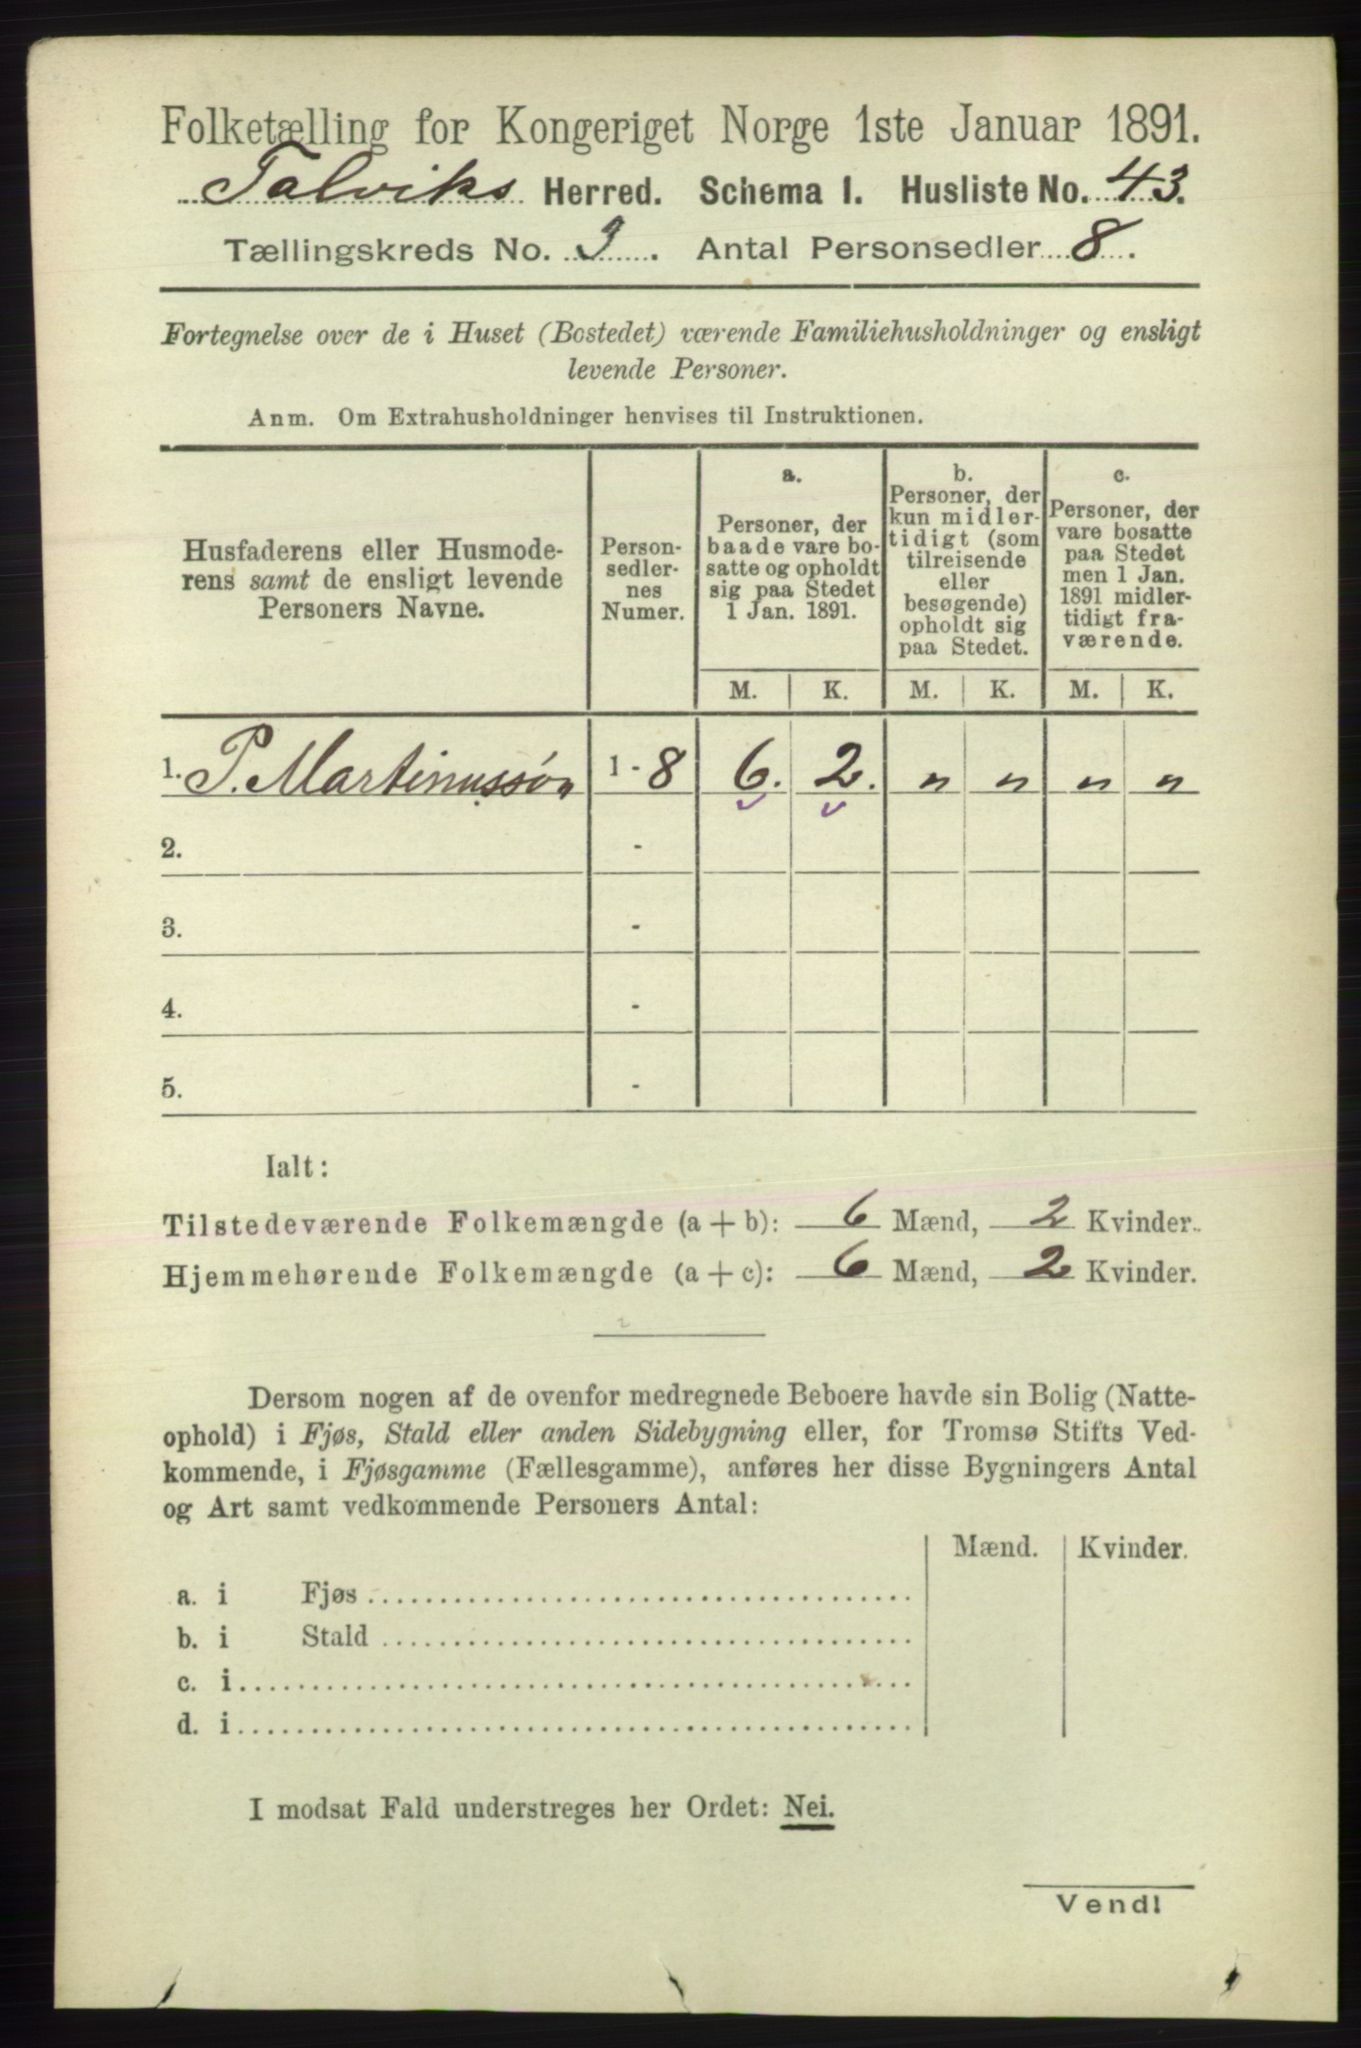 Folketælling for Kongeriget Norge 1ste Januar 1891.
Talviks Herred. Schema I. Husliste No. 43.
Tællingskreds No. 9. Antal Personsedler 8.
Fortegnelse over de i Huset (Bostedet) værende Familiehusholdninger og ensligt
levende Personer.
Anm. Om Extrahusholdninger henvises til Instruktionen.
Husfaderens eller Husmode-
rens samt de ensligt levende
Personers Navne.
Person-
sedler-
nes
Numer.
a.
Personer, der
baade vare bo-
satte og opholdt
sig paa Stedet
1 Jan. 1891.
b.
Personer, der
kun midler-
tidigt (som
tilreisende
eller
besøgende)
opholdt sig
paa Stedet.
c.
Personer, der
vare bosatte
paa Stedet
men 1 Jan.
1891 midler-
tidigt fra-
værende.
M. K. M. K. M. K.
1. P. Martinussøn 1-8 6. 2. " " " "
2. -
3. -
4. -
5. -
Ialt:
Tilstedeværende Folkemængde (a + b): 6 Mænd, 2 Kvinder.
Hjemmehørende Folkemængde (a + c): 6 Mænd, 2 Kvinder.
Dersom nogen af de ovenfor medregnede Beboere havde sin Bolig (Natte-
ophold) i Fjøs, Stald eller anden Sidebygning eller, for Tromsø Stifts Ved-
kommende, i Fjøsgamme (Fællesgamme), anføres her disse Bygningers Antal
og Art samt vedkommende Personers Antal:
Mænd. Kvinder.
a. i Fjøs
b. i Stald
c. i
d. i
I modsat Fald understreges her Ordet: Nei.
Vend!